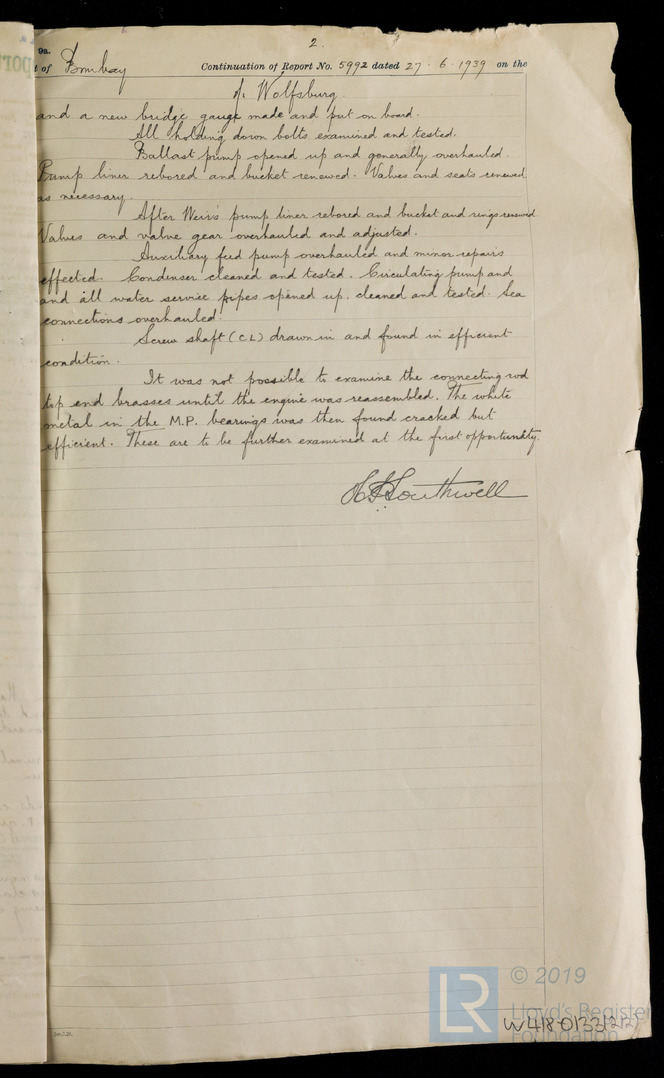 2.
9a.
t of Bombay Continuation of Report No. 5992 dated 27 · 6 · 1939 on the
s. Wolfsburg.
and a new bridge gauge made and put on board.
All holding down bolts examined and tested.
Ballast pump opened up and generally overhauled.
Pump liner rebored and bucket renewed. Valves and seats renewed
as necessary.
After Weir's pump liner rebored and bucket and rings renewed
Valves and valve gear overhauled and adjusted.
Auxiliary feed pump overhauled and minor repairs
effected. Condenser cleaned and tested. Circulating pump and
and all water service pipes opened up, cleaned and tested. Sea
connections overhauled.
Screw shaft (CL) drawn in and found in efficient
condition.
It was not possible to examine the connecting rod
top end brasses until the engine was reassembled. The white
metal in the M.P. bearings was then found cracked but
efficient. These are to be further examined at the first opportunity.
Southwell
LR © 2019
Lloyd's Register
Foundation
W418-0133(2/2)